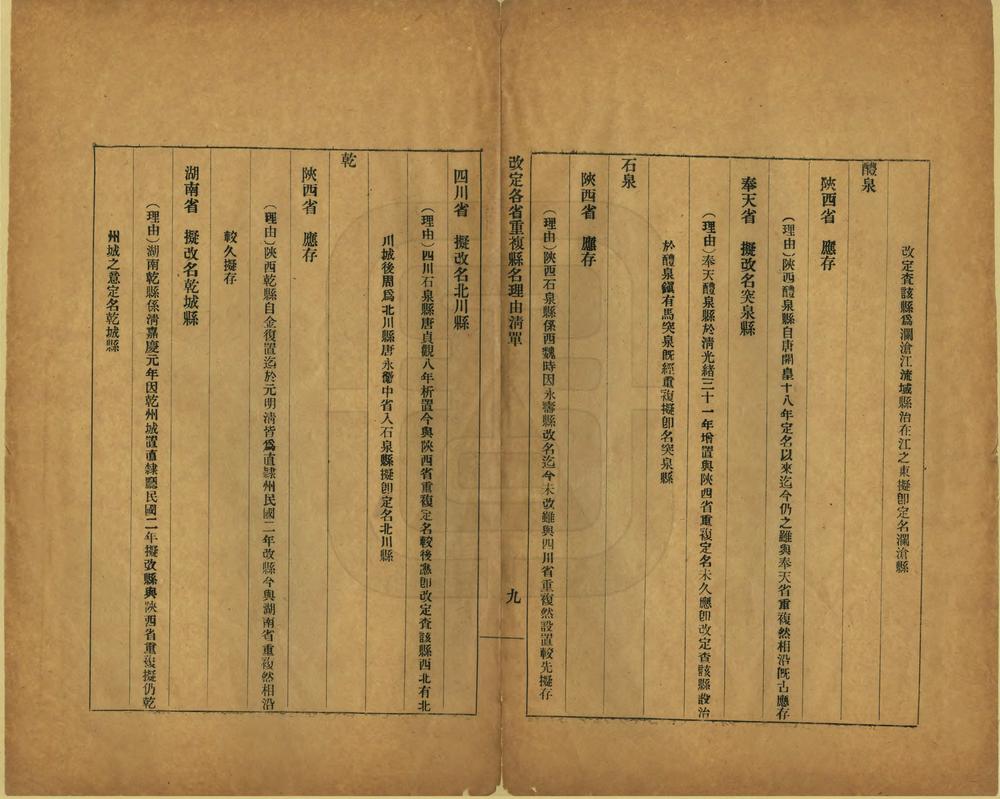 改定查該縣爲瀾滄江流域縣治在江之東擬卽定名瀾滄縣
醴泉
陝西省　應存
（理由）陝西醴泉縣自唐開皇十八年定名以來迄今仍之雖與奉天省重複然相沿旣古應存
奉天省　擬改名突泉縣
（理由）奉天醴泉縣於淸光緖三十一年增置與陝西省重複定名未久應卽改定查該縣設治
於醴泉鎭有馬突泉旣經重複擬卽名突泉縣
石泉
陝西省　應存
（理由）陝西石泉縣係西魏時因永壽縣改名迄今未改雖與四川省重複然設置較先擬存
改定各省重複縣名理由淸單
九
四川省　擬改名北川縣
（理由）四川石泉縣唐貞觀八年析置今與陝西省重複定名較後應卽改定查該縣西北有北
川城後周爲北川縣唐永徽中省入石泉縣擬卽定名北川縣
乾
陝西省　應存
（理由）陝西乾縣自金復置迄於元明淸皆爲直隸州民國二年改縣今與湖南省重複然相沿
較久擬存
湖南省　擬改名乾城縣
（理由）湖南乾縣係淸嘉慶元年因乾州城置直隸廳民國二年擬改縣與陝西省重複擬仍乾
州城之意定名乾城縣